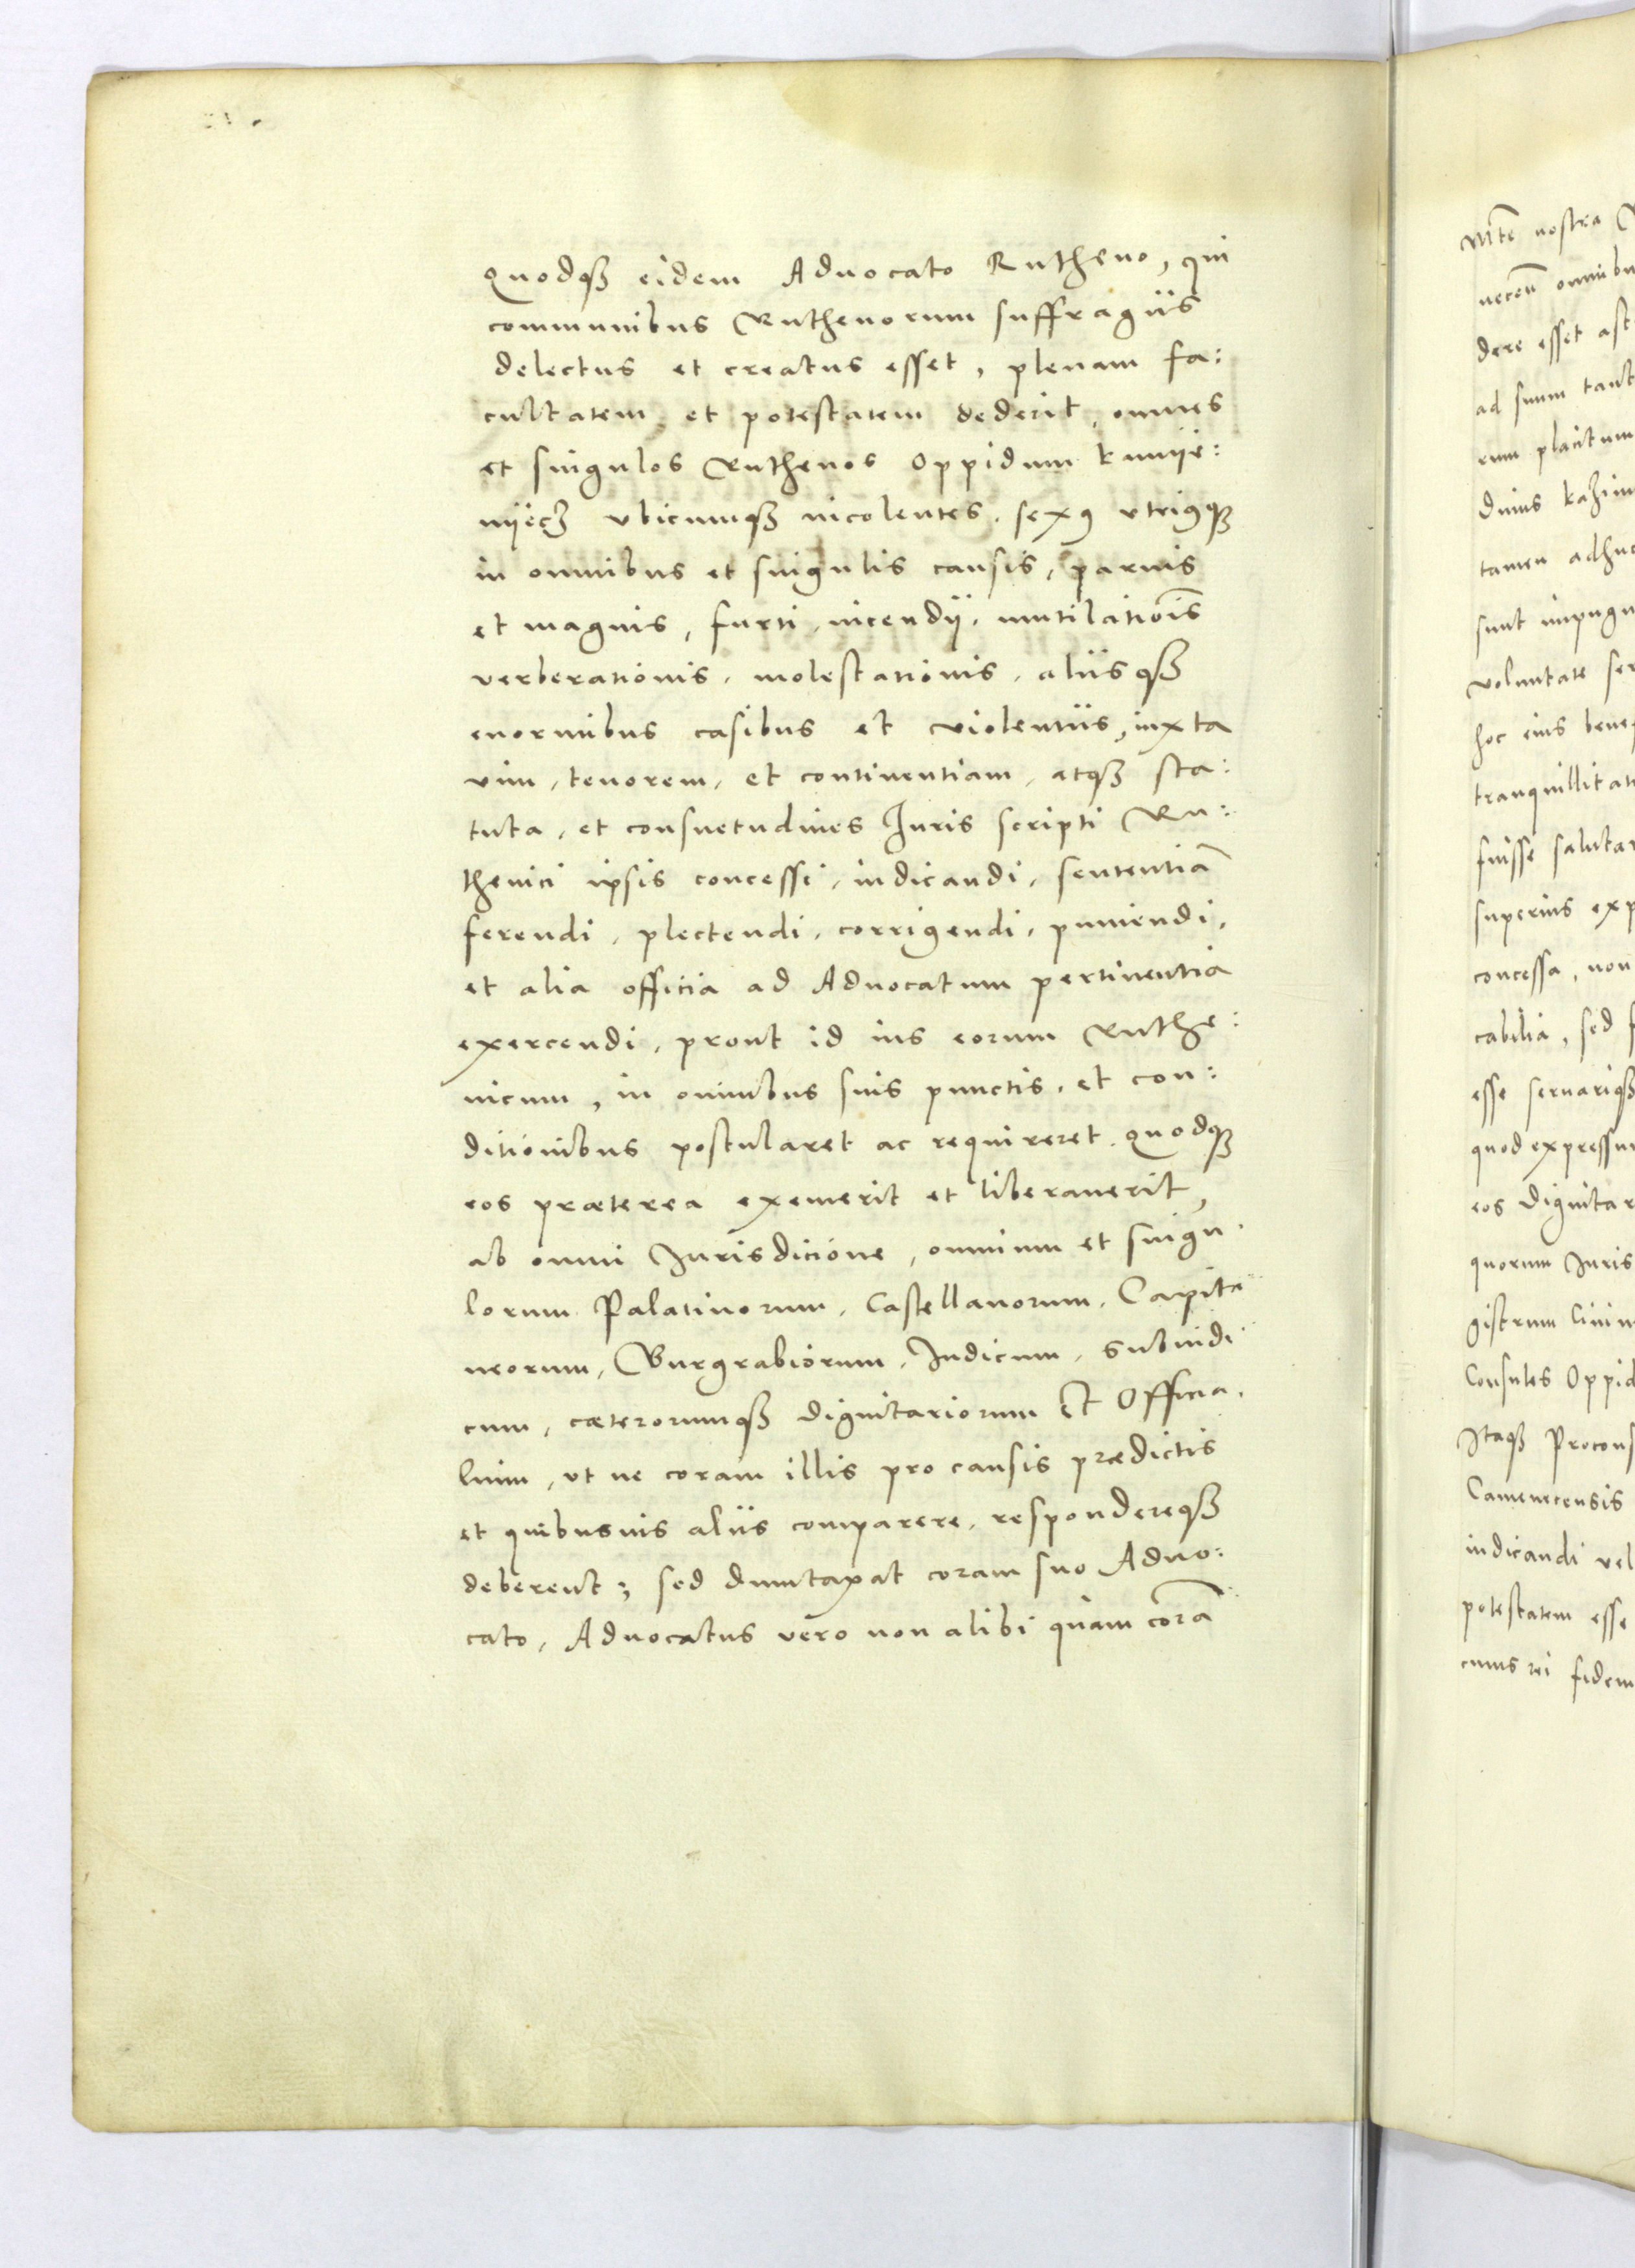 Quodqꝫ eidem Aduocato Rutheno, qui
communibus Ruthenorum suffragijs
delectus et creatus esset, plenam fa:
cultatem et potestatem dederit, omnes
et singulos Ruthenos Oppidum kamye:
nyecz vbicumqꝫ incolentes, sexꝰ vtriꝰqꝫ
in omnibus et singulis causis, paruis
et magnis, furti, incendij, mutilatiōis
verberationis, molestationis, alijsqꝫ
enormibus casibus et violentijs, iuxta
vim, tenorem, et continentiam, atqꝫ sta:
tuta, et consuetudines Iuris scripti Ru:
thenici ipsis concessi, iudicandi, sententiā
ferendi, plectendi, corrigendi, puniendi,
et alia officia ad Aduocatum pertinentia
exercendi, prout id ius eorum Ruthe:
nicum, in omnibus suis punctis, et con:
ditionibus postularet ac requireret. Quodqꝫ
eos præterea exemerit et liberauerit,
ab omni Iurisdicione, omnium et singu:
lorum Palatinorum, Castellanorum, Capita:
neorum, Burgrabiorum, Iudicum, Subiudi:
cum, cæterorumqꝫ dignitariorum Et Officia:
lium, vt ne coram illis pro causis prædictis
et quibusuis alijs comparere, respondereqꝫ
deberent; sed dumtaxat coram suo Aduo:
cato, Aduocatus vero non alibi quam corā
Mte nostra
omnibu
dere esset
ad suum
rum placitum
diuus kazim
tamen adhuc
sunt impugn
voluntate ser
hoc eius benef
tranquillitat
fuisse saluta
superius exp
concessa, non
cabilia, sed
esse seruariqꝫ
quod expressu
eos dignitar
quorum Iuris
gistrum Ciuiu
Consules Oppid
Itaqꝫ Procons
Camenecensis
iudicandi vel
potestatem esse
cuius rei fidem